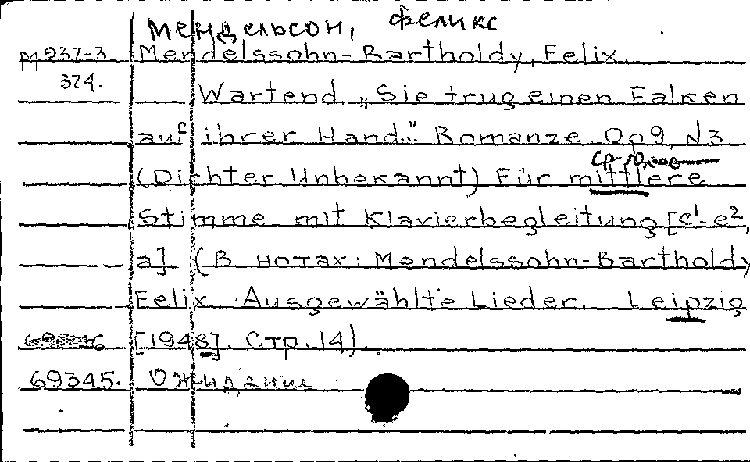 Мендельсон, Феликс
М 937-3 Mendelssohn-Bartholdy, Felix
374. Wartend „Sie trug einen Falken
auf ihrer Hand..." Romanze Op 9, N3
(Dichter Unbekannt) Für mittlere
Stimme mit Klavierbegleitung [c¹-e²,
a] (В нотах: Mendelssohn-Bartholdy
Felix Ausgewählte Lieder. Leipzig
[1948]. Стр. 14)
69345. Ожидание